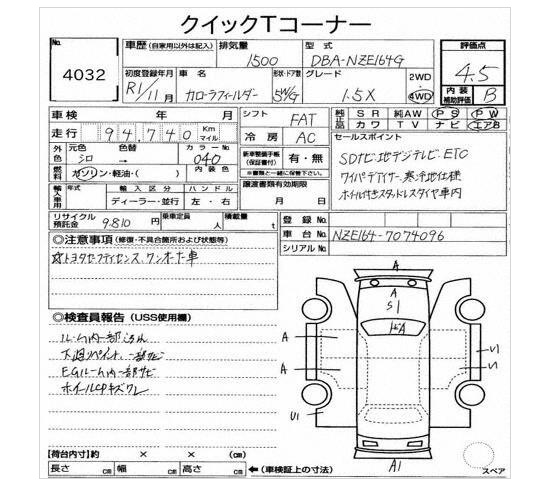 クイックTコーナー
No.
4032
車歴 (自家用以外は記入) 排気量 1500 型式 DBA-NZE164G
初度登録年月 R1/11月 車名 カローラフィールダー 形状・ドア数 5W/G グレード 1.5X 2WD・4WD
評価点 4.5
内装補助評価 B
車検 年 月
走行 94,740 Km マイル
外色 元色 シロ 色替 → カラーNo 040
燃料 ガソリン・軽油・( ) 内装色
輸入車用 年式 輸入区分 ディーラー・並行 ハンドル 左・右
リサイクル預託金 9.810 円 乗車定員 人 積載量 t
シフト FAT
冷房 AC
新車整備手帳(保証書付) 有・無
※書類と一緒に保管して下さい。
譲渡書類有効期限
月 日
純正品 SR 純AW PS PW
カワ TV ナビ エアB
セールスポイント
SDナビ・地デジテレビ ETC
ワイパーデアイサー 寒冷地仕様
ホイル付きスタッドレスタイヤ車内
登録No.
車台No. NZE164-7074096
シリアルNo.
◎注意事項 (修復・不具合箇所および状態等)
☆トヨタセーフティセンス、ワンオーナー車
◎検査員報告 (USS使用欄)
ルーム内一部
下廻りペイント、一部サビ
EGルーム内一部サビ
ホイルキズ
【荷台内寸】約 × × (cm)
長さ cm 幅 cm 高さ cm ←(車検証上の寸法)
A
A
S1
A
A
A
U1
U1
U1
A1
スペア